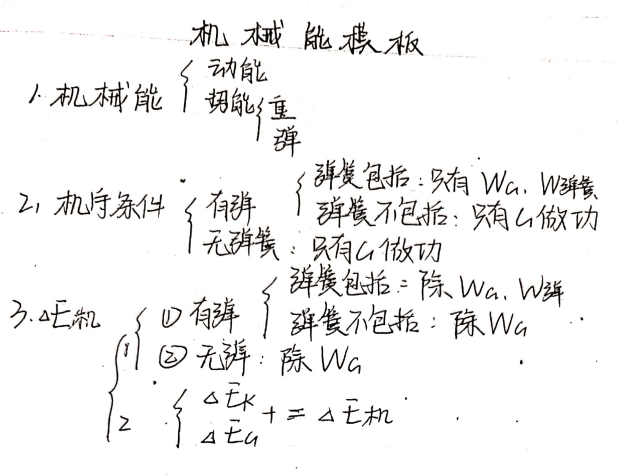 机械能模板
1. 机械能 { 动能
势能 { 重
弹
2, 机守条件 { 有弹 { 弹簧包括: 只有 WG、W弹簧
弹簧不包括: 只有G做功
无弹簧: 只有G做功
3. △E机 { 1 { ① 有弹 { 弹簧包括: 除 WG、W弹
弹簧不包括: 除WG
② 无弹: 除WG
2 { △EK
△EG + = △E机